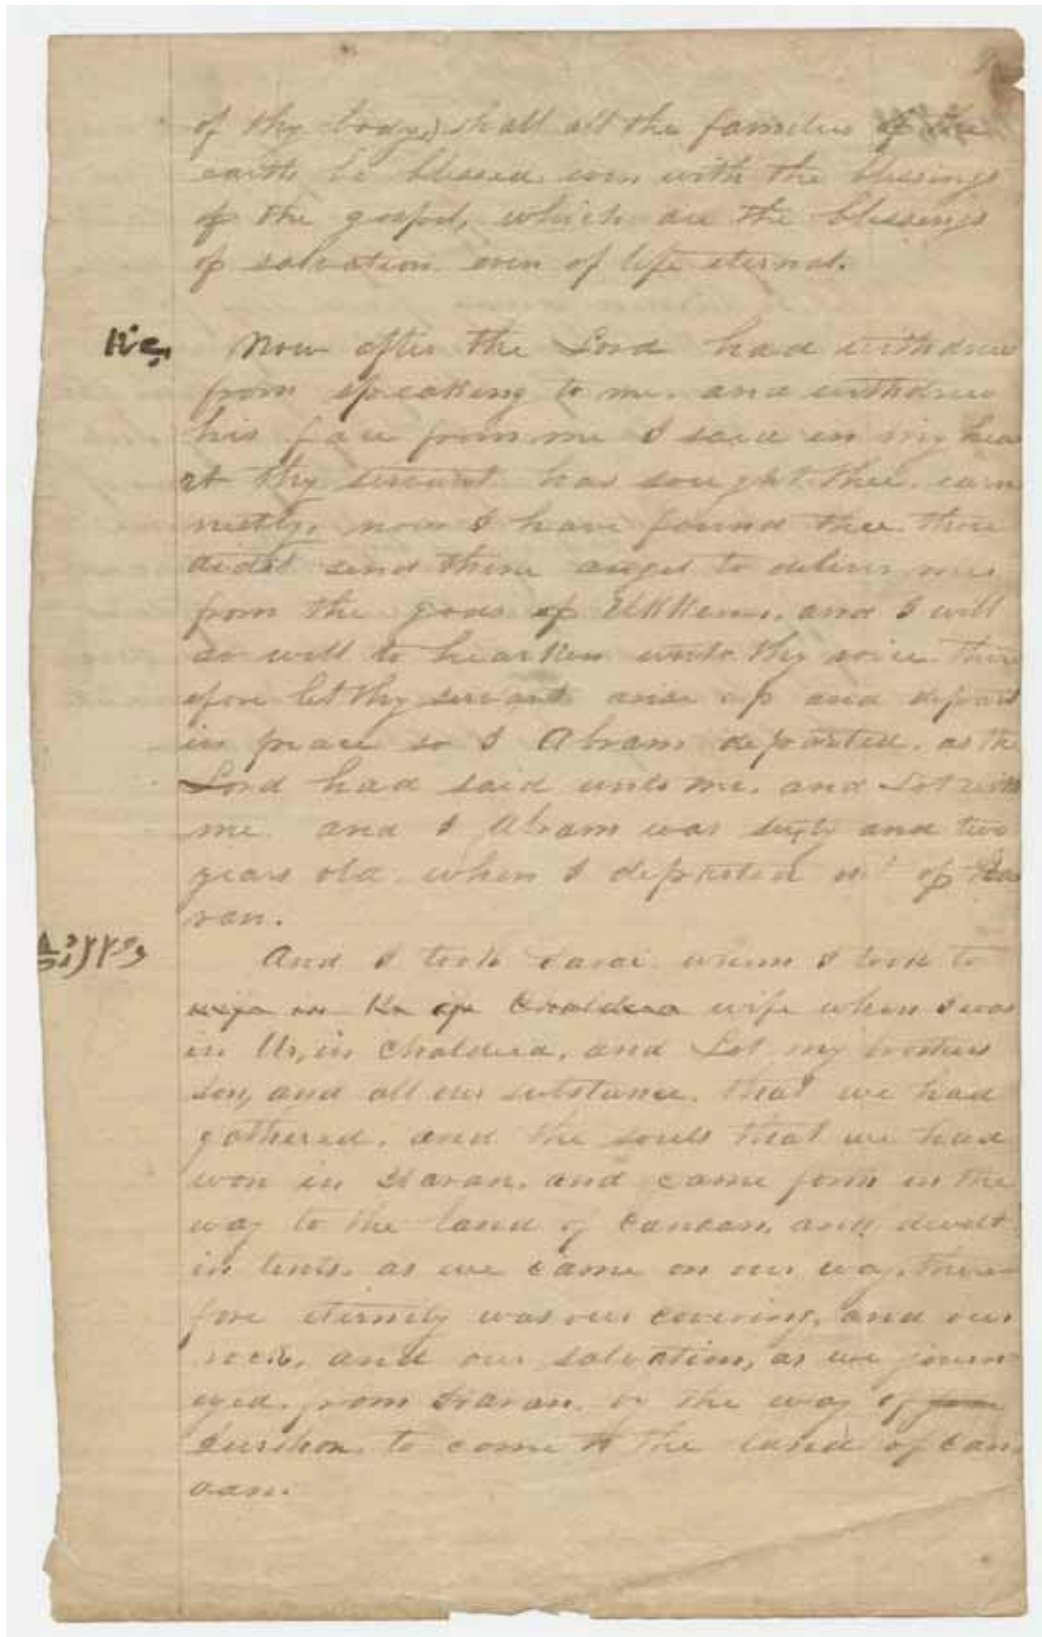 of thy body) shall all the families of the
earth be blessed even with the blessings
of the gospel, which are the blessings
of salvation even of life eternal.
Now after the Lord had withdrew
from speaking to me. and withdrew
his face from me I said in my hea
rt thy servant has sought thee. earn
nestly, now I have found thee. thou
didst send thine angel to deliver me
from the gods of Elkkener, and I will
do well to hearken unto thy voice. there
efore let thy servant arise up and depart
in peace so I Abram departed. as the
Lord had said unto me. and Lot with
me. and I Abram was sixty and two
years old. when I departed out of Ha
ran.
And I took Sarai. whom I took to
wife when I was
in Ur, in Chaldeea, and Lot my brothers
son, and all our substance. that we had
gathered. and the souls that we had
won in Haran. and came forth in the
way to the land of Canaan, and dwelt
in tents. as we came on our way. there
fore eternity was our covering, and our
rock, and our salvation, as we journ
eyed. from Haran. by the way of
Jurshon. to come to the land of Can
aan.